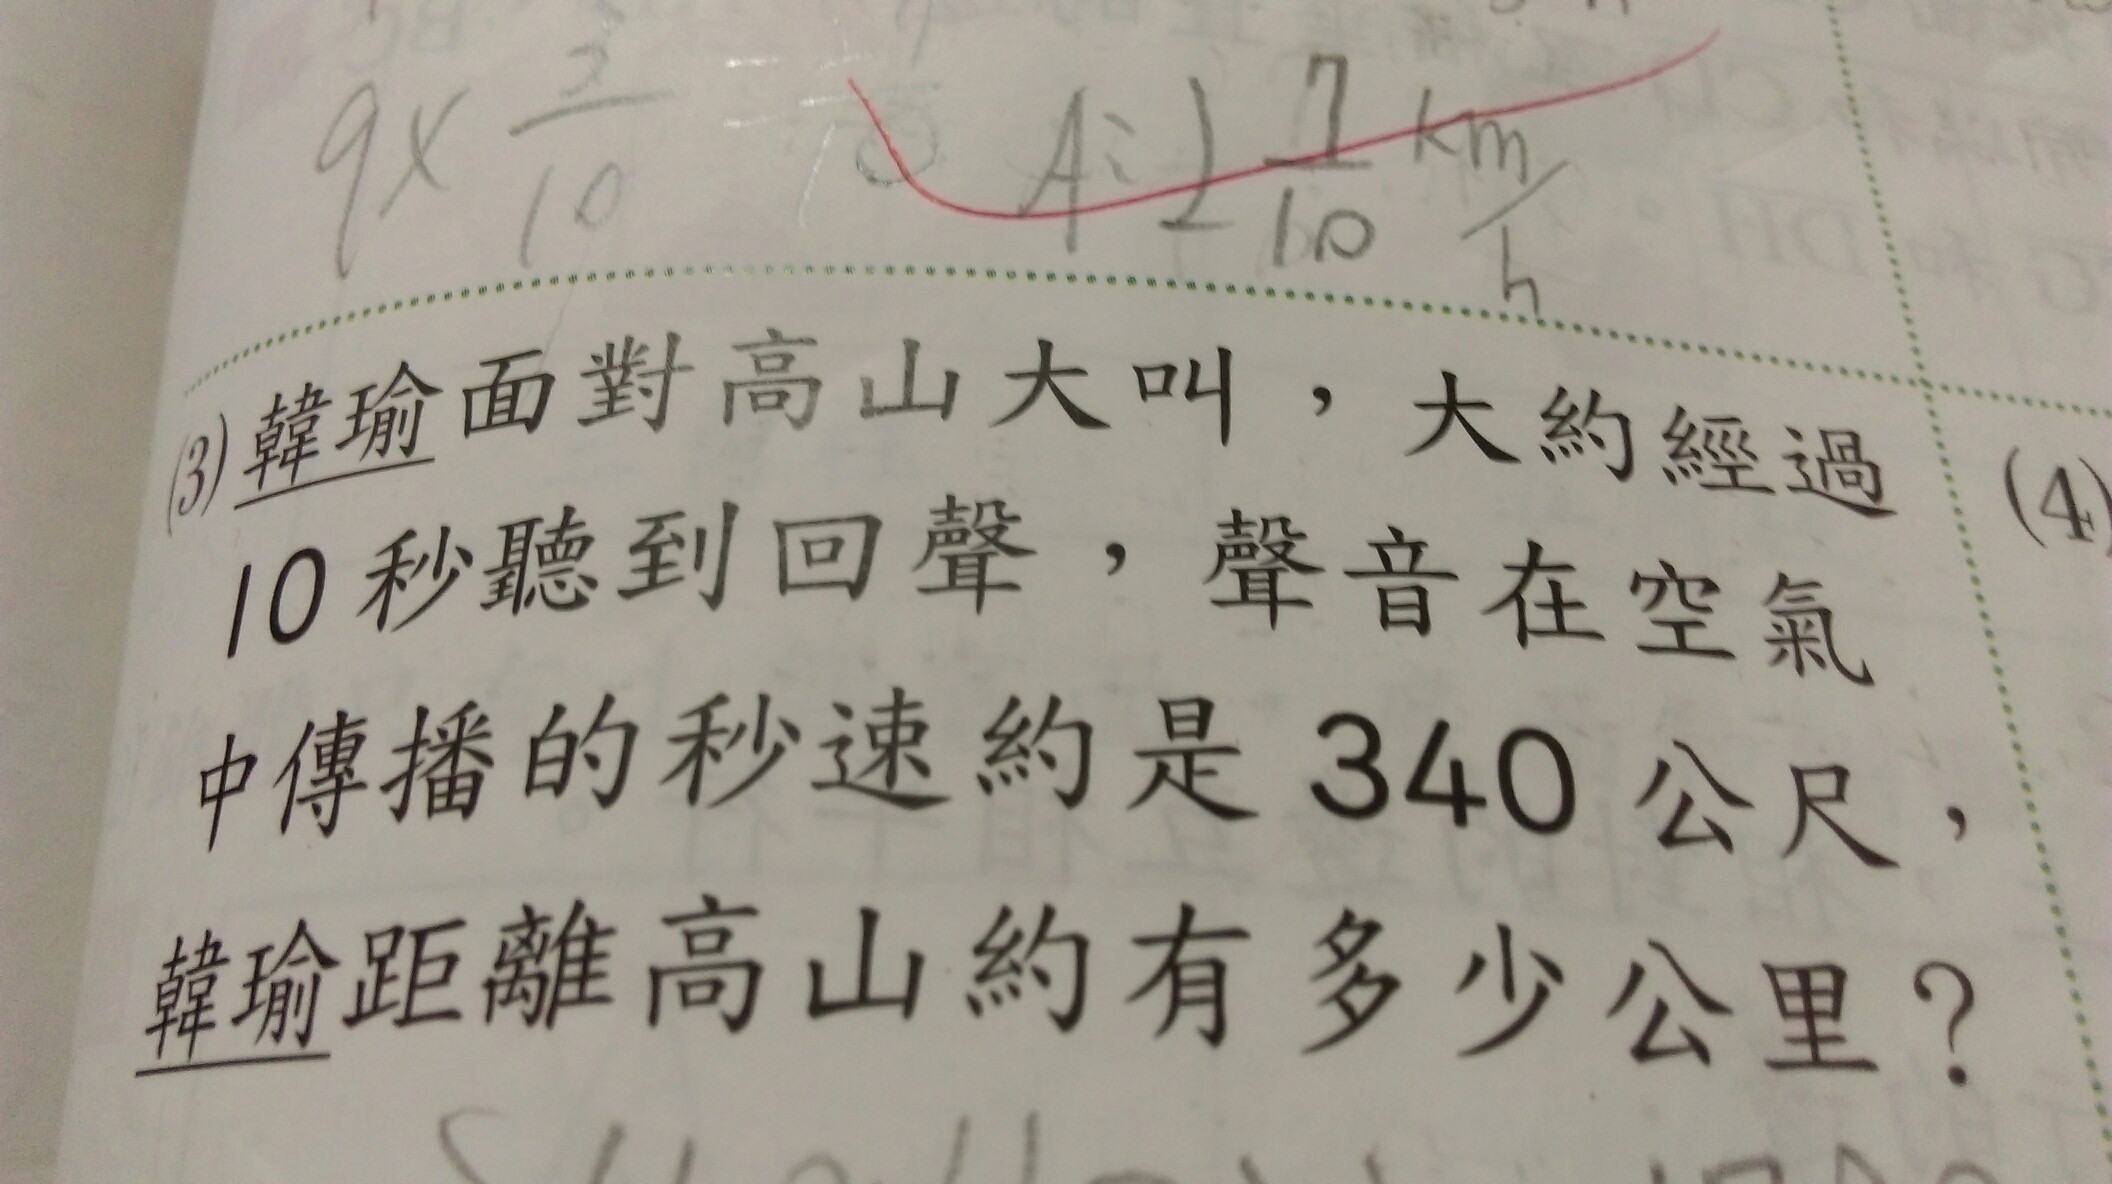 9× 3/10 A: 2 7/10 km/h
(3)韓瑜面對高山大叫，大約經過
10秒聽到回聲，聲音在空氣
中傳播的秒速約是340公尺，
韓瑜距離高山約有多少公里？
(4)